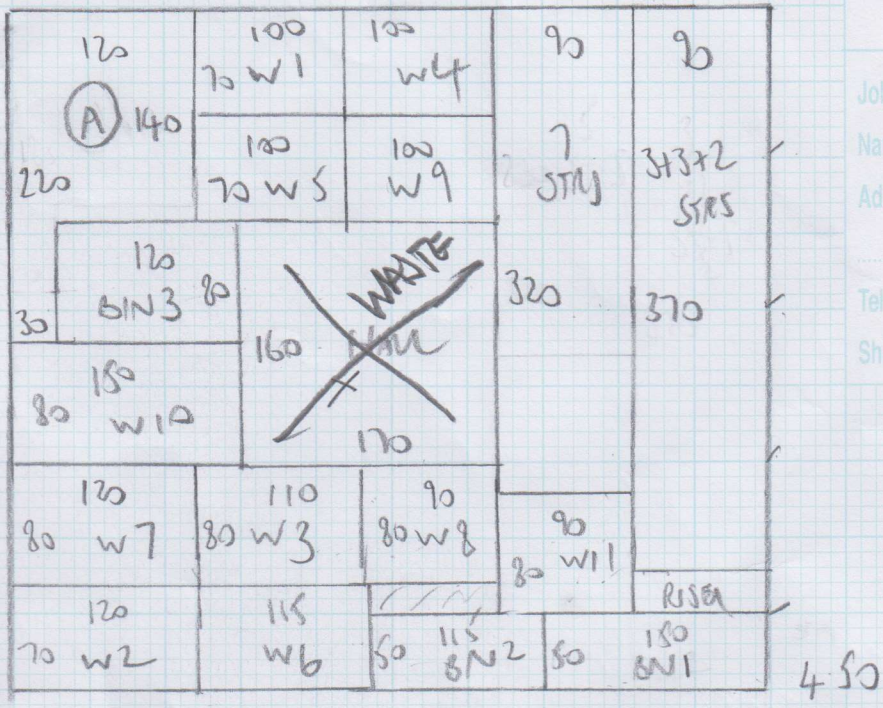 120
A 140
220
100
70 W1
100
W4
100
70 W5
100
W9
90
7
STRS
320
90
3+3+2
STRS
370
120
BIN3 80
30
WASTE
HALL
160
170
150
80 W10
120
80 W7
110
80 W3
90
80 W8
90
80 W11
RISER
120
70 W2
115
W6
115
50 BIN2
150
50 BIN1
4.50
Na
Ad
Tel